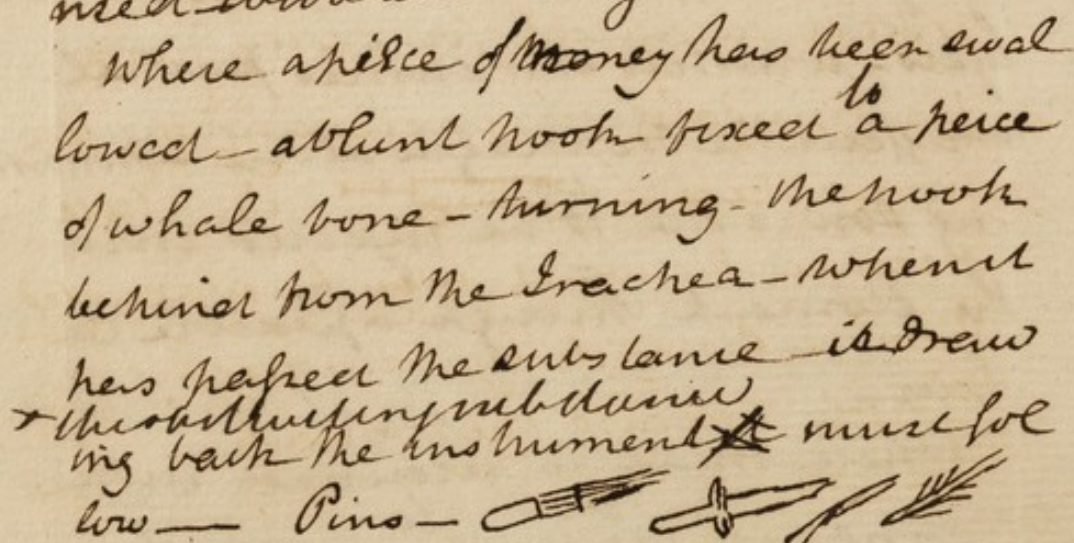 Where a peice of money has been swal
lowed - a blunt hook fixed to a peice
of whale bone - turning - the hook
behind from the Trachea - when it
has passed the substance is draw
x the obstructing substance
ing back the instrument it must fol
low — Pins -